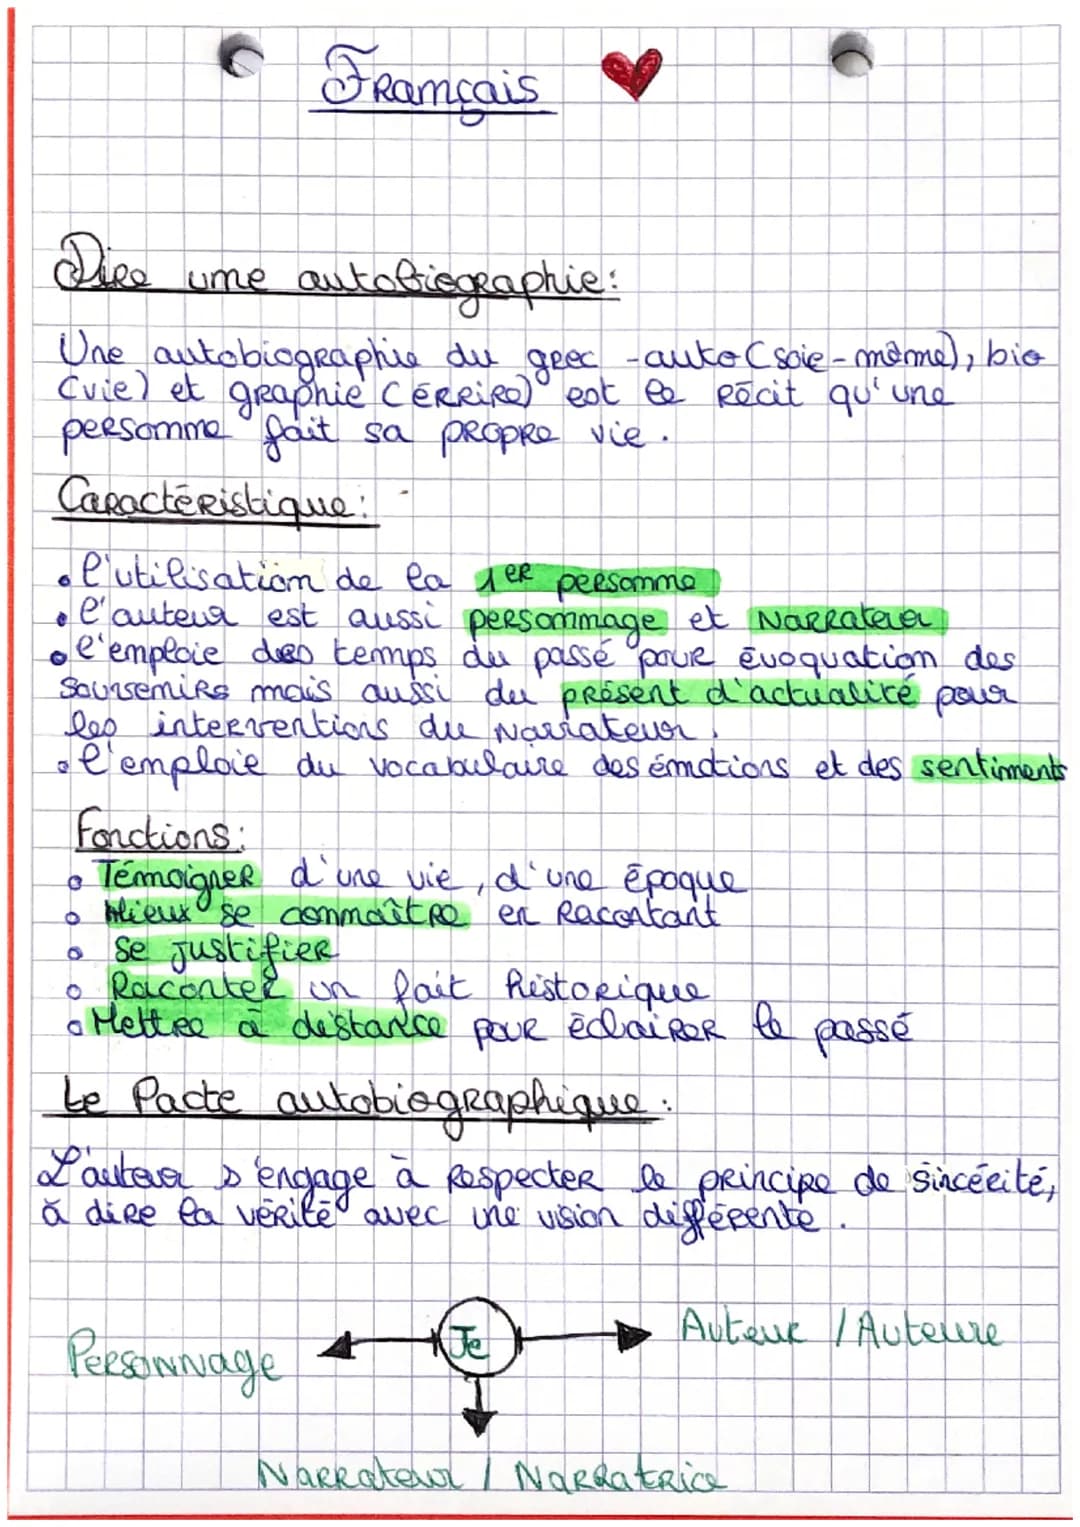 Français
Dire une autobiographie:
Une autobiographie du grec -auto (soie-même), bio
(vie) et graphie (érrire) est le récit qu'une
personne fait sa propre vie.
Caractéristique:
• l'utilisation de la 1er personne
• l'auteur est aussi personnage et Narrateur
• l'emploie des temps du passé pour évoquation des
souvenirs mais aussi du présent d'actualité pour
les interventions du Narrateur.
• l'emploie du vocabulaire des émotions et des sentiments
Fonctions:
• Témoigner d'une vie, d'une époque
• Mieux se connaître en Racontant
• Se justifier
• Raconter un fait historique
• Mettre à distance pour éclairer le passé
Le Pacte autobiographique:
L'auteur s'engage à Respecter le principe de sincérité,
à dire la vérité avec une vision différente.
Personnage Je Auteur / Auteure
Narrateur / Narratrice